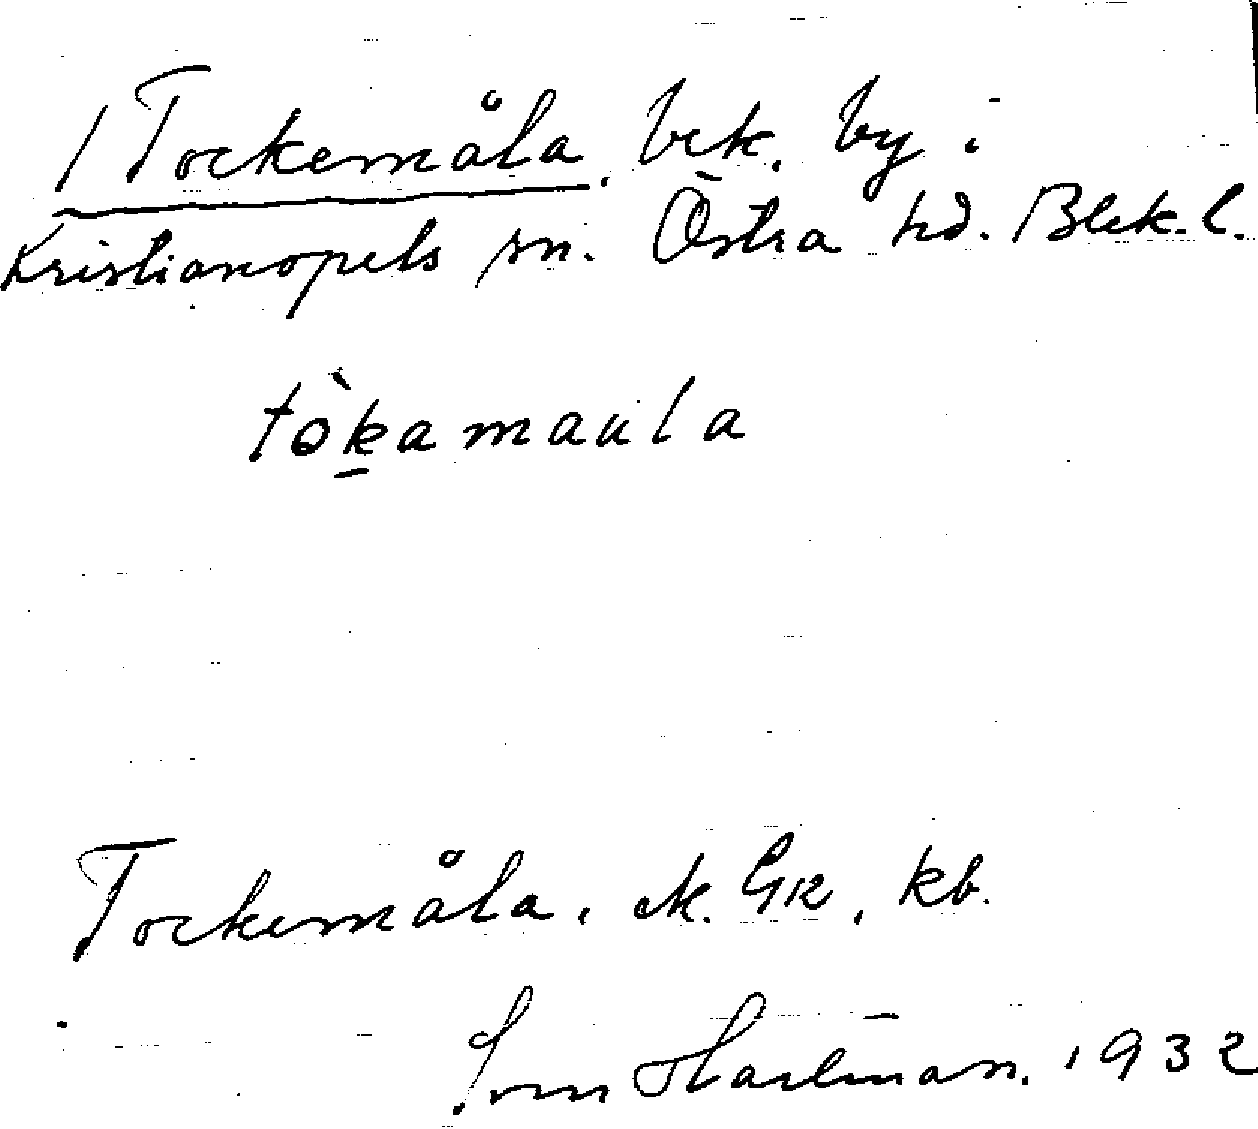 / Tockemåla. bek. by i
Kristianopels sn. Östra hd. Blek. l.
tòkamaula
Tockemåla, ek. GK, kb.
Hartman. 1932